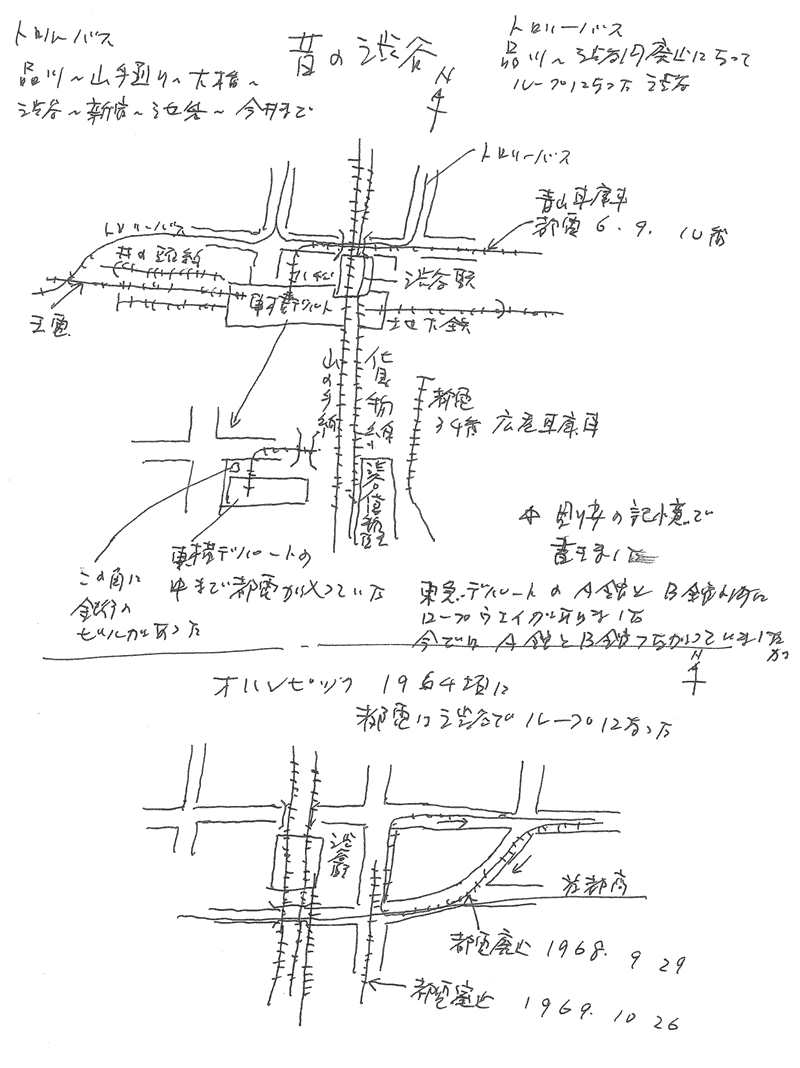 昔の渋谷
トロリーバス
品川～山手通り～大橋～
渋谷～新宿～池袋～今井まで
トロリーバス
品川～渋谷の廃止によって
ループになった渋谷
N
トロリーバス
青山車庫
都電6.9.10番
トロリーバス
井の頭線
ハチ公
渋谷駅
東横デパート
地下鉄
玉電
山の手線
貨物線
都電
34番 広尾車庫
渋谷貨物駅
東横デパートの
中まで都電が入っていた
この角に
銀行の
ビルがあった
書きました
東急デパートのA館とB館
ロープウエイがありました
今ではA館とB館つながっています
N
オリンピック 1964頃に
都電は渋谷でループになった
渋谷駅
都電廃止 1968. 9 29
都電廃止 1969. 10 26